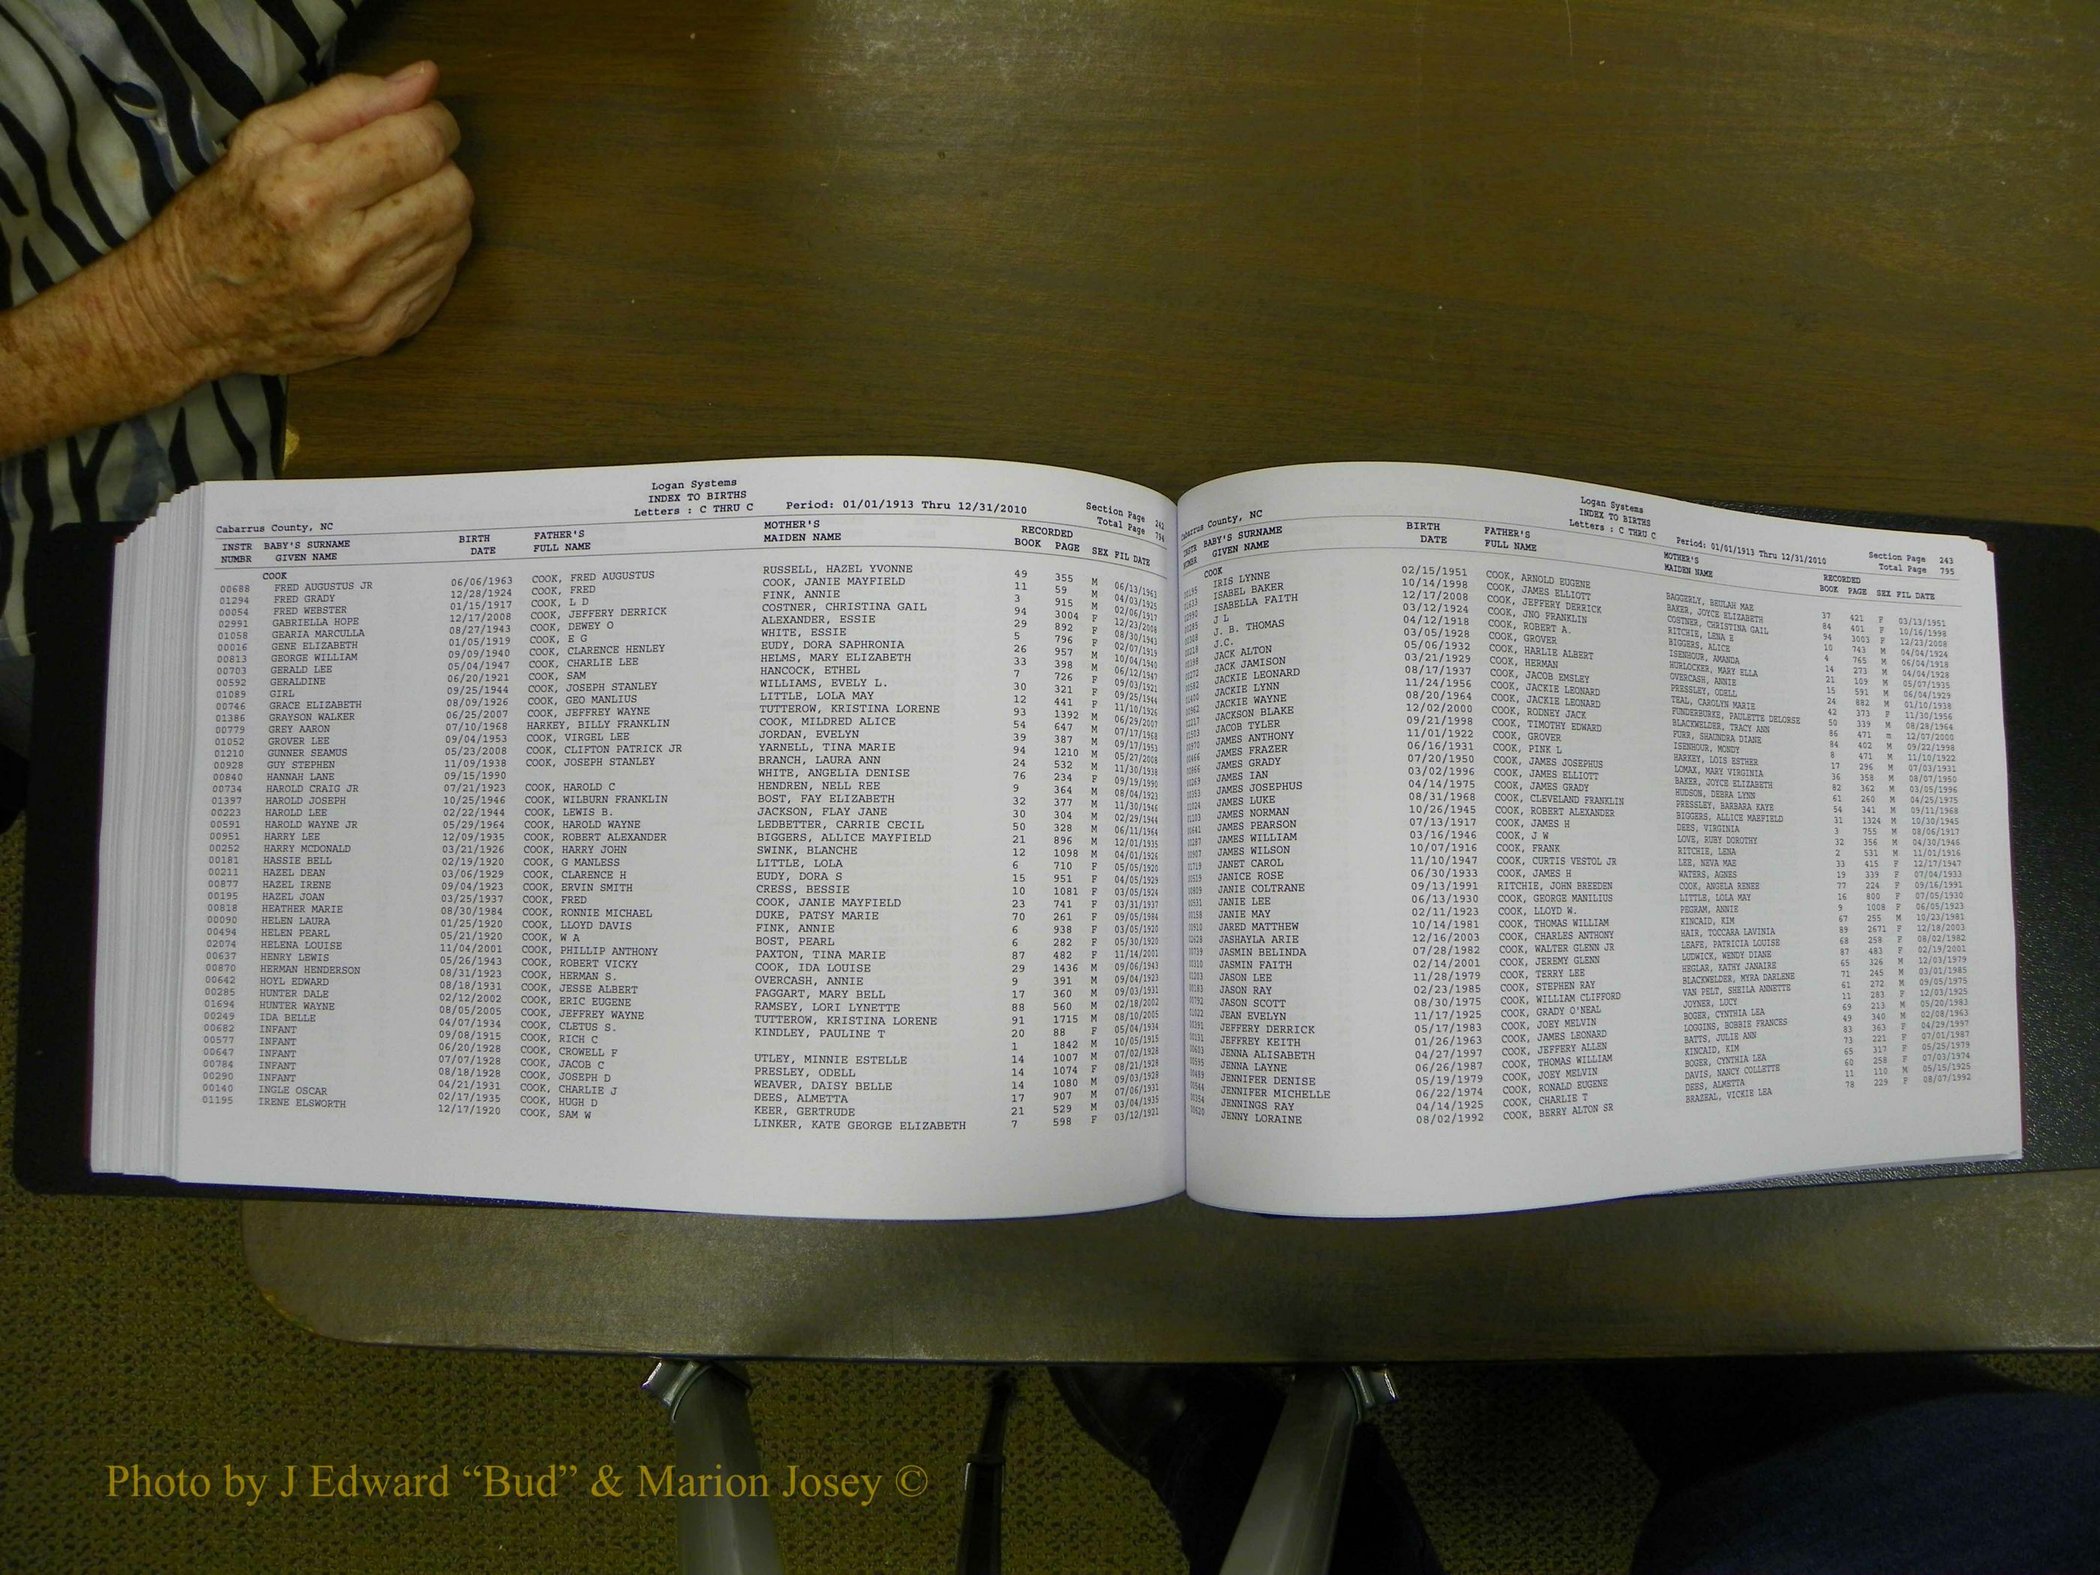 Logan Systems
INDEX TO BIRTHS
Cabarrus County, NC Letters : C THRU C Period: 01/01/1913 Thru 12/31/2010 Section Page 242
Total Page 794
INSTR BABY'S SURNAME BIRTH FATHER'S MOTHER'S RECORDED
NUMBR GIVEN NAME DATE FULL NAME MAIDEN NAME BOOK PAGE SEX FIL DATE
COOK
00688 FRED AUGUSTUS JR 06/06/1963 COOK, FRED AUGUSTUS RUSSELL, HAZEL YVONNE 49 355 M 06/13/1963
01294 FRED GRADY 12/28/1924 COOK, FRED COOK, JANIE MAYFIELD 11 59 M 04/03/1925
00054 FRED WEBSTER 01/15/1917 COOK, L D FINK, ANNIE 3 915 M 02/06/1917
02991 GABRIELLA HOPE 12/17/2008 COOK, JEFFERY DERRICK COSTNER, CHRISTINA GAIL 94 3004 F 12/23/2008
01058 GEARIA MARCULLA 08/27/1943 COOK, DEWEY O ALEXANDER, ESSIE 29 892 F 08/30/1943
00016 GENE ELIZABETH 01/05/1919 COOK, E G WHITE, ESSIE 5 796 F 02/07/1919
00813 GEORGE WILLIAM 09/09/1940 COOK, CLARENCE HENLEY EUDY, DORA SAPHRONIA 26 957 M 10/04/1940
00703 GERALD LEE 05/04/1947 COOK, CHARLIE LEE HELMS, MARY ELIZABETH 33 398 M 06/12/1947
00592 GERALDINE 06/20/1921 COOK, SAM HANCOCK, ETHEL 7 726 F 09/03/1921
01089 GIRL 09/25/1944 COOK, JOSEPH STANLEY WILLIAMS, EVELY L. 30 321 F 09/25/1944
00746 GRACE ELIZABETH 08/09/1926 COOK, GEO MANLIUS LITTLE, LOLA MAY 12 441 F 11/10/1926
01386 GRAYSON WALKER 06/25/2007 COOK, JEFFREY WAYNE TUTTEROW, KRISTINA LORENE 93 1392 M 06/29/2007
00779 GREY AARON 07/10/1968 HARKEY, BILLY FRANKLIN COOK, MILDRED ALICE 54 647 M 07/17/1968
01052 GROVER LEE 09/04/1953 COOK, VIRGEL LEE JORDAN, EVELYN 39 387 M 09/17/1953
01210 GUNNER SEAMUS 05/23/2008 COOK, CLIFTON PATRICK JR YARNELL, TINA MARIE 94 1210 M 05/27/2008
00928 GUY STEPHEN 11/09/1938 COOK, JOSEPH STANLEY BRANCH, LAURA ANN 24 532 M 11/30/1938
00840 HANNAH LANE 09/15/1990 WHITE, ANGELIA DENISE 76 234 F 09/19/1990
00734 HAROLD CRAIG JR 07/21/1923 COOK, HAROLD C HENDREN, NELL REE 9 364 M 08/04/1923
01397 HAROLD JOSEPH 10/25/1946 COOK, WILBURN FRANKLIN BOST, FAY ELIZABETH 32 377 M 11/30/1946
00223 HAROLD LEE 02/22/1944 COOK, LEWIS B. JACKSON, FLAY JANE 30 304 M 02/29/1944
00591 HAROLD WAYNE JR 05/29/1964 COOK, HAROLD WAYNE LEDBETTER, CARRIE CECIL 50 328 M 06/11/1964
00951 HARRY LEE 12/09/1935 COOK, ROBERT ALEXANDER BIGGERS, ALLICE MAYFIELD 21 896 M 12/01/1935
00252 HARRY MCDONALD 03/21/1926 COOK, HARRY JOHN SWINK, BLANCHE 12 1098 M 04/01/1926
00181 HASSIE BELL 02/19/1920 COOK, G MANLESS LITTLE, LOLA 6 710 F 05/05/1920
00211 HAZEL DEAN 03/06/1929 COOK, CLARENCE H EUDY, DORA S 15 951 F 04/05/1929
00877 HAZEL IRENE 09/04/1923 COOK, ERVIN SMITH CRESS, BESSIE 10 1081 F 03/05/1924
00195 HAZEL JOAN 03/25/1937 COOK, FRED COOK, JANIE MAYFIELD 23 741 F 03/31/1937
00818 HEATHER MARIE 08/30/1984 COOK, RONNIE MICHAEL DUKE, PATSY MARIE 70 261 F 09/05/1984
00090 HELEN LAURA 01/25/1920 COOK, LLOYD DAVIS FINK, ANNIE 6 938 F 03/05/1920
00494 HELEN PEARL 05/21/1920 COOK, W A BOST, PEARL 6 282 F 05/30/1920
02074 HELENA LOUISE 11/04/2001 COOK, PHILLIP ANTHONY PAXTON, TINA MARIE 87 482 F 11/14/2001
00637 HENRY LEWIS 05/26/1943 COOK, ROBERT VICKY COOK, IDA LOUISE 29 1436 M 09/06/1943
00870 HERMAN HENDERSON 08/31/1923 COOK, HERMAN S. OVERCASH, ANNIE 9 391 M 09/04/1923
00642 HOYL EDWARD 08/18/1931 COOK, JESSE ALBERT FAGGART, MARY BELL 17 360 M 09/03/1931
00285 HUNTER DALE 02/12/2002 COOK, ERIC EUGENE RAMSEY, LORI LYNETTE 88 560 M 02/18/2002
01694 HUNTER WAYNE 08/05/2005 COOK, JEFFREY WAYNE TUTTEROW, KRISTINA LORENE 91 1715 M 08/10/2005
00249 IDA BELLE 04/07/1934 COOK, CLETUS S. KINDLEY, PAULINE T 20 88 F 05/04/1934
00682 INFANT 09/08/1915 COOK, RICH C 1 1842 M 10/05/1915
00577 INFANT 06/20/1928 COOK, CROWELL F UTLEY, MINNIE ESTELLE 14 1007 M 07/02/1928
00647 INFANT 07/07/1928 COOK, JACOB C PRESLEY, ODELL 14 1074 F 08/21/1928
00784 INFANT 08/18/1928 COOK, JOSEPH D WEAVER, DAISY BELLE 14 1080 M 09/03/1928
00290 INFANT 04/21/1931 COOK, CHARLIE J DEES, ALMETTA 17 907 M 07/06/1931
00140 INGLE OSCAR 02/17/1935 COOK, HUGH D KEER, GERTRUDE 21 529 M 03/04/1935
01195 IRENE ELSWORTH 12/17/1920 COOK, SAM W LINKER, KATE GEORGE ELIZABETH 7 598 F 03/12/1921
Logan Systems
INDEX TO BIRTHS
Cabarrus County, NC Letters : C THRU C Period: 01/01/1913 Thru 12/31/2010 Section Page 243
Total Page 795
INSTR BABY'S SURNAME BIRTH FATHER'S MOTHER'S RECORDED
NUMBR GIVEN NAME DATE FULL NAME MAIDEN NAME BOOK PAGE SEX FIL DATE
COOK
00195 IRIS LYNNE 02/15/1951 COOK, ARNOLD EUGENE BAGGERLY, BEULAH MAE 37 421 F 03/13/1951
01633 ISABEL BAKER 10/14/1998 COOK, JAMES ELLIOTT BAKER, JOYCE ELIZABETH 84 401 F 10/16/1998
02990 ISABELLA FAITH 12/17/2008 COOK, JEFFERY DERRICK COSTNER, CHRISTINA GAIL 94 3003 F 12/23/2008
00285 J L 03/12/1924 COOK, JNO FRANKLIN RITCHIE, LENA E 10 743 M 04/04/1924
00308 J. B. THOMAS 04/12/1918 COOK, ROBERT A. BIGGERS, ALICE 4 765 M 06/04/1918
00218 J.C. 03/05/1928 COOK, GROVER ISENHOUR, AMANDA 14 273 M 04/04/1928
00398 JACK ALTON 05/06/1932 COOK, HARLIE ALBERT HURLOCKER, MARY ELLA 21 109 M 05/07/1935
00272 JACK JAMISON 03/21/1929 COOK, HERMAN OVERCASH, ANNIE 15 591 M 06/04/1929
00582 JACKIE LEONARD 08/17/1937 COOK, JACOB EMSLEY PRESSLEY, ODELL 24 882 M 01/10/1938
01400 JACKIE LYNN 11/24/1956 COOK, JACKIE LEONARD TEAL, CAROLYN MARIE 42 373 F 11/30/1956
00962 JACKIE WAYNE 08/20/1964 COOK, JACKIE LEONARD FUNDERBURKE, PAULETTE DELORSE 50 339 M 08/28/1964
02217 JACKSON BLAKE 12/02/2000 COOK, RODNEY JACK BLACKWELDER, TRACY ANN 86 471 m 12/07/2000
01503 JACOB TYLER 09/21/1998 COOK, TIMOTHY EDWARD FURR, SHAUNDRA DIANE 84 402 M 09/22/1998
00970 JAMES ANTHONY 11/01/1922 COOK, GROVER ISENHOUR, MONDY 8 471 M 11/10/1922
00466 JAMES FRAZER 06/16/1931 COOK, PINK L HARKEY, LOIS ESTHER 17 296 M 07/03/1931
00866 JAMES GRADY 07/20/1950 COOK, JAMES JOSEPHUS LOMAX, MARY VIRGINIA 36 358 M 08/07/1950
00269 JAMES IAN 03/02/1996 COOK, JAMES ELLIOTT BAKER, JOYCE ELIZABETH 82 362 M 03/05/1996
00353 JAMES JOSEPHUS 04/14/1975 COOK, JAMES GRADY HUDSON, DEBRA LYNN 61 260 M 04/25/1975
01024 JAMES LUKE 08/31/1968 COOK, CLEVELAND FRANKLIN PRESSLEY, BARBARA KAYE 54 341 M 09/11/1968
01103 JAMES NORMAN 10/26/1945 COOK, ROBERT ALEXANDER BIGGERS, ALLICE MAEFIELD 31 1324 M 10/30/1945
00641 JAMES PEARSON 07/13/1917 COOK, JAMES H DEES, VIRGINIA 3 755 M 08/06/1917
00287 JAMES WILLIAM 03/16/1946 COOK, J W LOVE, RUBY DOROTHY 32 356 M 04/30/1946
00907 JAMES WILSON 10/07/1916 COOK, FRANK RITCHIE, LENA 2 531 M 11/01/1916
01719 JANET CAROL 11/10/1947 COOK, CURTIS VESTOL JR LEE, NEVA MAE 33 415 F 12/17/1947
00519 JANICE ROSE 06/30/1933 COOK, JAMES H WATERS, AGNES 19 339 F 07/04/1933
00809 JANIE COLTRANE 09/13/1991 RITCHIE, JOHN BREEDEN COOK, ANGELA RENEE 77 224 F 09/16/1991
00531 JANIE LEE 06/13/1930 COOK, GEORGE MANILIUS LITTLE, LOLA MAY 16 800 F 07/05/1930
00158 JANIE MAY 02/11/1923 COOK, LLOYD W. PEGRAM, ANNIE 9 1008 F 06/05/1923
00910 JARED MATTHEW 10/14/1981 COOK, THOMAS WILLIAM KINCAID, KIM 67 255 M 10/23/1981
02628 JASHAYLA ARIE 12/16/2003 COOK, CHARLES ANTHONY HAIR, TOCCARA LAVINIA 89 2671 F 12/18/2003
00739 JASMIN BELINDA 07/28/1982 COOK, WALTER GLENN JR LEAFE, PATRICIA LOUISE 68 258 F 08/02/1982
00310 JASMIN FAITH 02/14/2001 COOK, JEREMY GLENN LUDWICK, WENDY DIANE 87 483 F 02/19/2001
01203 JASON LEE 11/28/1979 COOK, TERRY LEE HEGLAR, KATHY JANAIRE 65 326 M 12/03/1979
00183 JASON RAY 02/23/1985 COOK, STEPHEN RAY BLACKWELDER, MYRA DARLENE 71 245 M 03/01/1985
00792 JASON SCOTT 08/30/1975 COOK, WILLIAM CLIFFORD VAN PELT, SHEILA ANNETTE 61 272 M 09/05/1975
01022 JEAN EVELYN 11/17/1925 COOK, GRADY O'NEAL JOYNER, LUCY 11 283 F 12/03/1925
00391 JEFFERY DERRICK 05/17/1983 COOK, JOEY MELVIN BOGER, CYNTHIA LEA 69 213 M 05/20/1983
00131 JEFFREY KEITH 01/26/1963 COOK, JAMES LEONARD LOGGINS, BOBBIE FRANCES 49 340 M 02/08/1963
00603 JENNA ALISABETH 04/27/1997 COOK, JEFFERY ALLEN BATTS, JULIE ANN 83 363 F 04/29/1997
00595 JENNA LAYNE 06/26/1987 COOK, THOMAS WILLIAM KINCAID, KIM 73 221 F 07/01/1987
00489 JENNIFER DENISE 05/19/1979 COOK, JOEY MELVIN BOGER, CYNTHIA LEA 65 317 F 05/25/1979
00544 JENNIFER MICHELLE 06/22/1974 COOK, RONALD EUGENE DAVIS, NANCY COLLETTE 60 258 F 07/03/1974
00354 JENNINGS RAY 04/14/1925 COOK, CHARLIE T DEES, ALMETTA 11 110 M 05/15/1925
00620 JENNY LORAINE 08/02/1992 COOK, BERRY ALTON SR BRAZEAL, VICKIE LEA 78 229 F 08/07/1992
Photo by J Edward “Bud” & Marion Josey ©